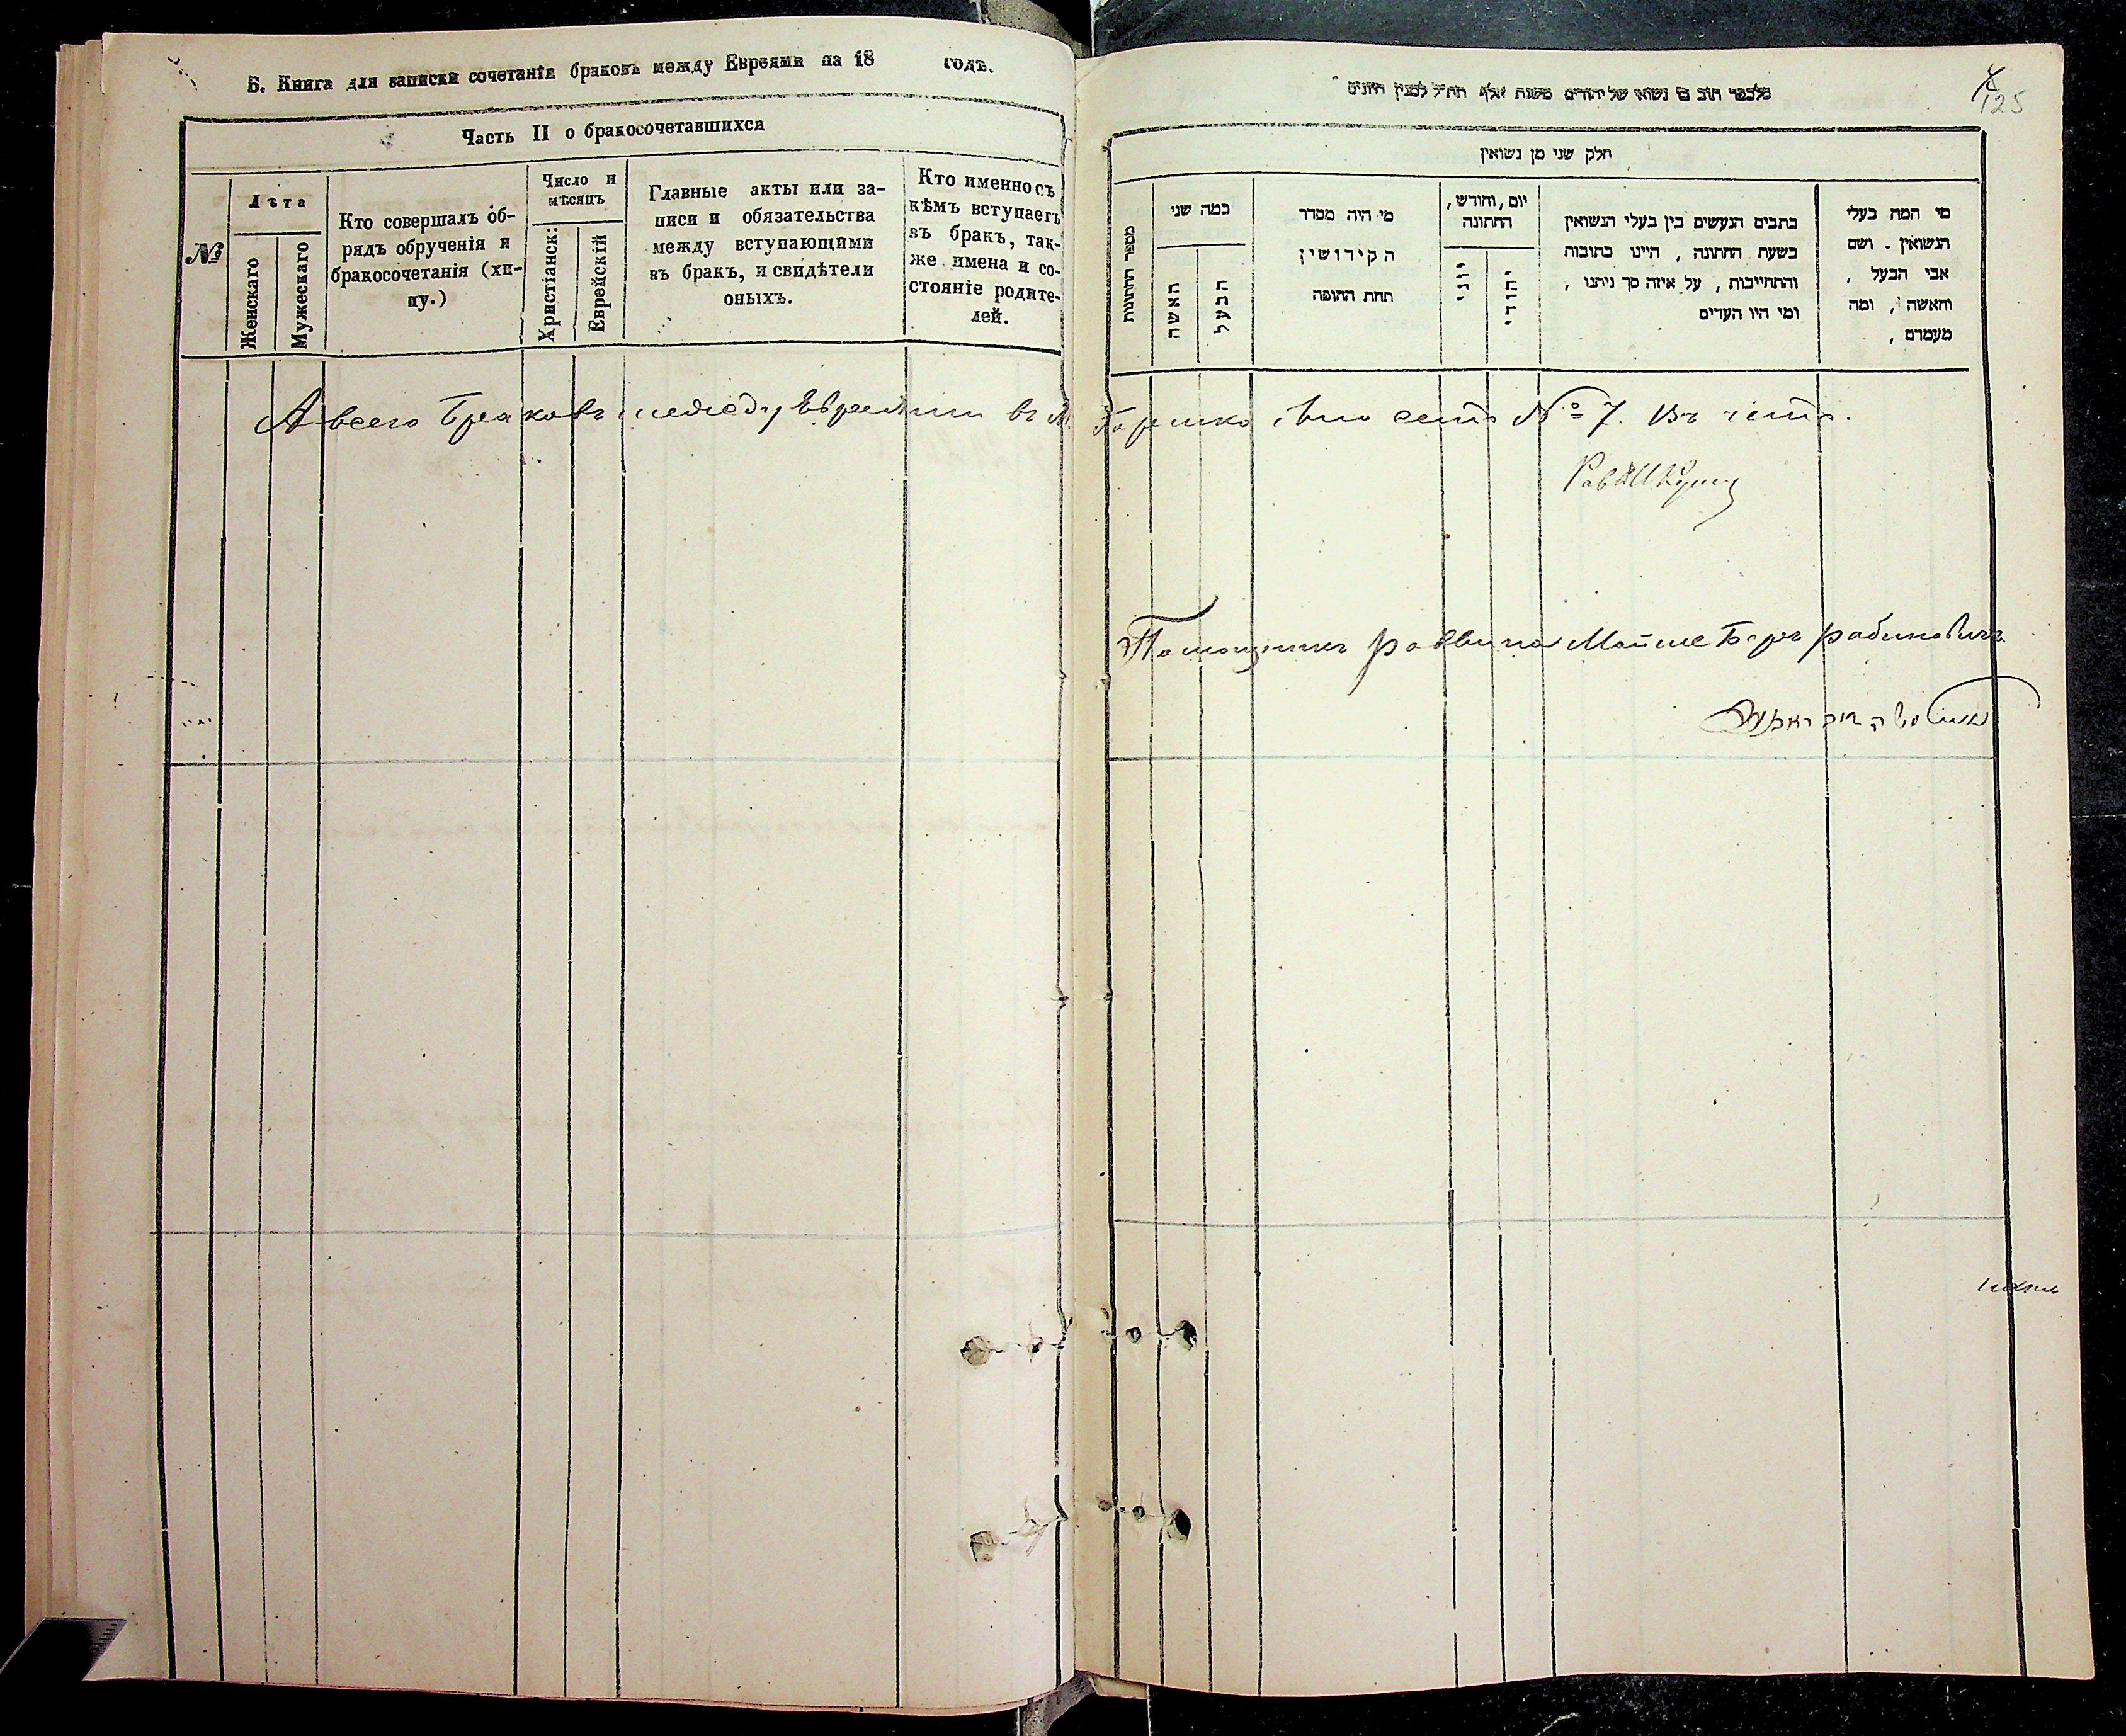 Б. Книга для записки сочетанія браковъ между Евреями на 18 годъ.
Часть II о бракосочетавшихся
№
Лѣта
Женскаго
Мужескаго
Кто совершалъ об-
рядъ обрученія и
бракосочетанія (хи-
пу.)
Число и
мѣсяцъ
Христіанск:
Еврейскій
Главные акты или за-
писи и обязательства
между вступающими
въ бракъ, и свидѣтели
оныхъ.
Кто именно съ
кѣмъ вступаетъ
въ бракъ, так-
же имена и со-
стояніе родите-
лей.
125
חלק שני מן נשואין
מספר החתונות
כמה שני
האשה
הבעל
מי היה מסדר
הקידושין
תחת החופה
יום, וחודש,
החתונה
יוני
יהודי
כתבים הנעשים בין בעלי הנשואין
בשעת החתונה, היינו כתובות
והתחייבות, על איזה סך ניתנו,
ומי היו העדים
מי המה בעלי
הנשואין. ושם
אבי הבעל,
והאשה, ומה
מעמדם,
А всего Браковъ между Евреями въ М. № 7. Въ
Помощникъ раввина Мойше Беръ рабиновичъ